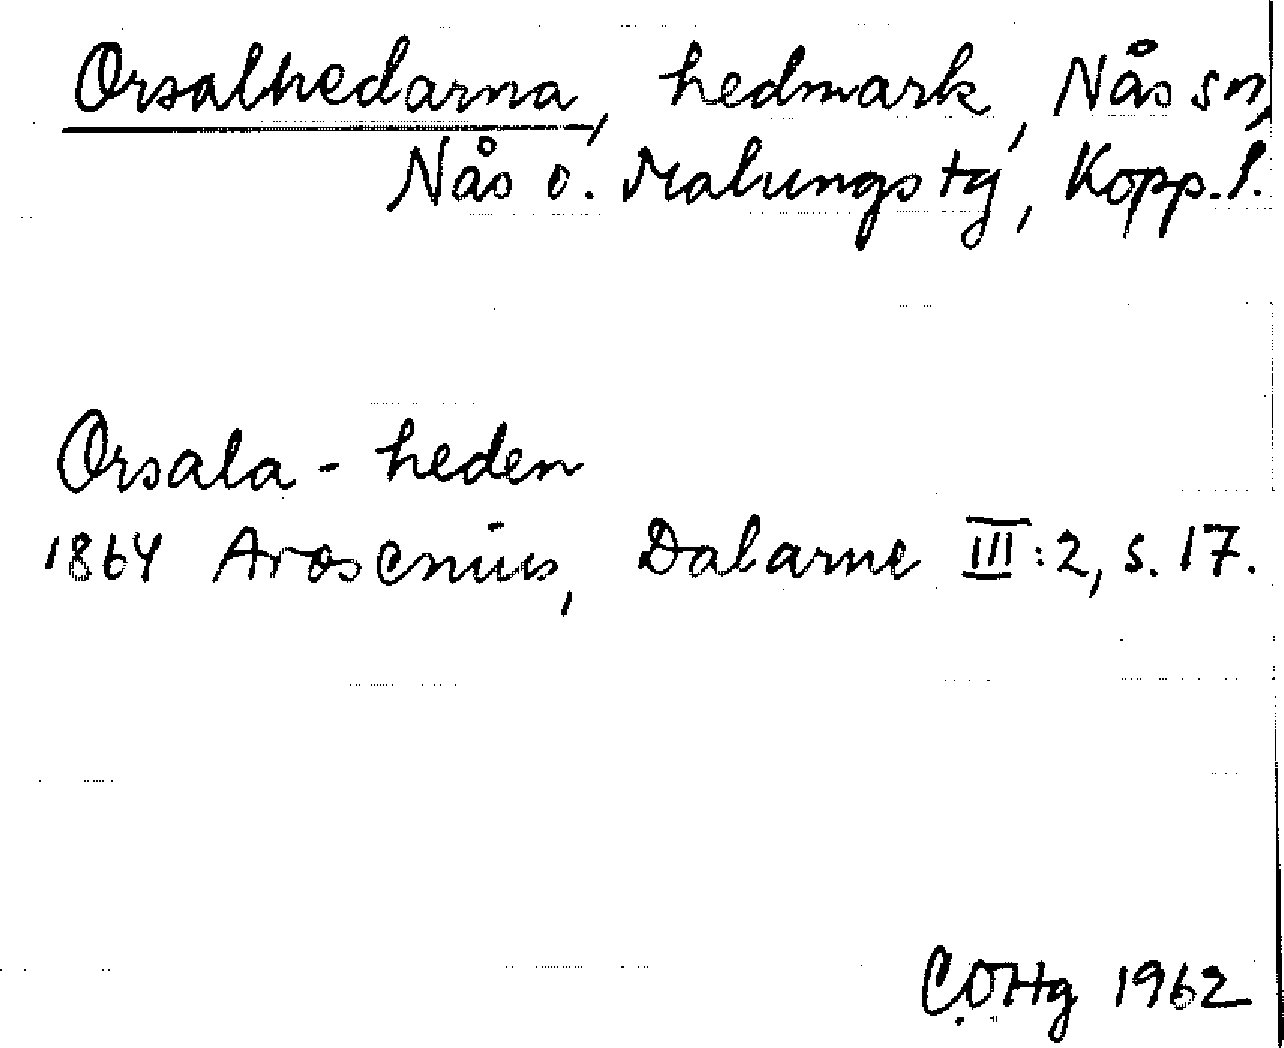 Orsalhedarna, hedmark, Nås sn,
Nås o. Malungs tg, Kopp. l.
Orsala - heden
1864 Arosenius, Dalarne III:2, s. 17.
C.O.Hg 1962